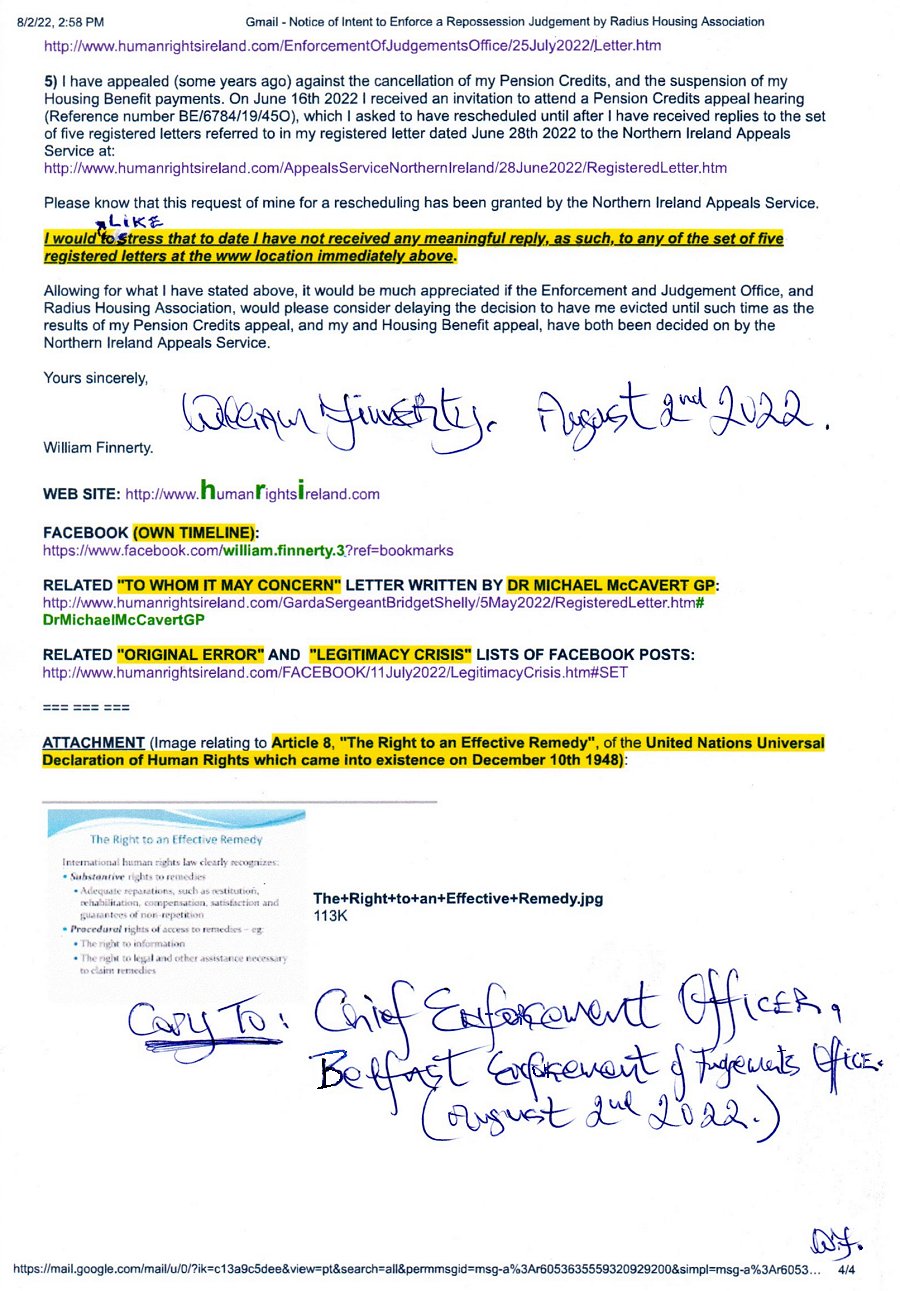 8/2/22, 2:58 PM Gmail - Notice of Intent to Enforce a Repossession Judgement by Radius Housing Association
http://www.humanrightsireland.com/EnforcementOfJudgementsOffice/25July2022/Letter.htm
5) I have appealed (some years ago) against the cancellation of my Pension Credits, and the suspension of my
Housing Benefit payments. On June 16th 2022 I received an invitation to attend a Pension Credits appeal hearing
(Reference number BE/6784/19/45O), which I asked to have rescheduled until after I have received replies to the set
of five registered letters referred to in my registered letter dated June 28th 2022 to the Northern Ireland Appeals
Service at:
http://www.humanrightsireland.com/AppealsServiceNorthernIreland/28June2022/RegisteredLetter.htm
Please know that this request of mine for a rescheduling has been granted by the Northern Ireland Appeals Service.
LIKE
I would to stress that to date I have not received any meaningful reply, as such, to any of the set of five
registered letters at the www location immediately above.
Allowing for what I have stated above, it would be much appreciated if the Enforcement and Judgement Office, and
Radius Housing Association, would please consider delaying the decision to have me evicted until such time as the
results of my Pension Credits appeal, and my and Housing Benefit appeal, have both been decided on by the
Northern Ireland Appeals Service.
Yours sincerely,
William Finnerty. August 2nd 2022.
William Finnerty.
WEB SITE: http://www.humanrightsireland.com
FACEBOOK (OWN TIMELINE):
https://www.facebook.com/william.finnerty.3?ref=bookmarks
RELATED "TO WHOM IT MAY CONCERN" LETTER WRITTEN BY DR MICHAEL McCAVERT GP:
http://www.humanrightsireland.com/GardaSergeantBridgetShelly/5May2022/RegisteredLetter.htm#
DrMichaelMcCavertGP
RELATED "ORIGINAL ERROR" AND "LEGITIMACY CRISIS" LISTS OF FACEBOOK POSTS:
http://www.humanrightsireland.com/FACEBOOK/11July2022/LegitimacyCrisis.htm#SET
=== === ===
ATTACHMENT (Image relating to Article 8, "The Right to an Effective Remedy", of the United Nations Universal
Declaration of Human Rights which came into existence on December 10th 1948):
The Right to an Effective Remedy
International human rights law clearly recognizes:
• Substantive rights to remedies
• Adequate reparations, such as restitution,
rehabilitation, compensation, satisfaction and
guarantees of non-repetition
• Procedural rights of access to remedies – eg:
• The right to information
• The right to legal and other assistance necessary
to claim remedies
The+Right+to+an+Effective+Remedy.jpg
113K
Copy To: Chief Enforcement Officer,
Belfast Enforcement of Judgements Office.
(August 2nd 2022.)
W.F.
https://mail.google.com/mail/u/0/?ik=c13a9c5dee&view=pt&search=all&permmsgid=msg-a%3Ar6053635559320929200&simpl=msg-a%3Ar6053... 4/4